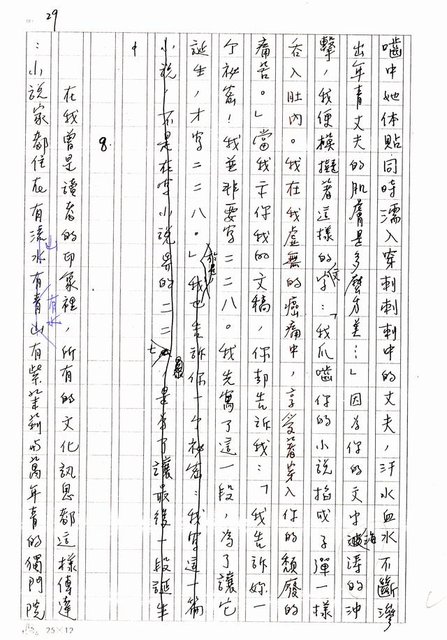 29
嚙中她体貼同時濡入穿刺刺刺中的丈夫,汗水血水不斷滲
出年青丈夫的肌膚是多麼方美…」因為你的文中波濤的沖
擊,我便模擬著這樣的字:「我爪嚙你的小說掐成子彈一樣
吞入肚內。我在我虛無的癌痛中,享受著穿入你的頹廢的
痛苦。」當我示你我的文稿,你却告訴我:「我告訴妳一
个祕密!我並非要寫二二八。我先寫了這一段,為了讓它
誕生,才寫二二八。」我也告訴你一个祕密:我寫這一篇
小說,不是在寫小說界的二二七,是為了讓最後一段誕生
。
8.
在我曾是讀者的印象裡,所有的文化訊息都這樣傳達
:小說家都住在有流水有青山有紫茉莉或萬年青的獨門院
25×12